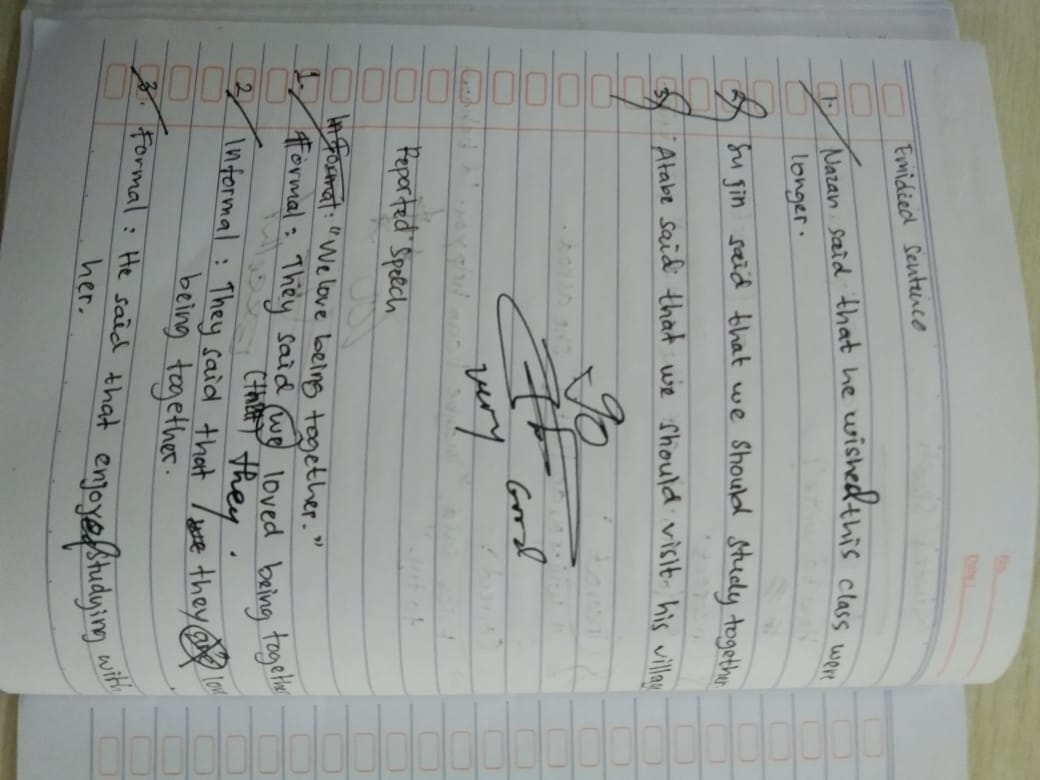 Emidied sentence
1. Nazan said that he wished this class were
longer.
2) Su jin said that we should study together
3) Atabe said that we should visit his village
90
very Good
Reported Speech
1. "We love being together."
Formal : They said we loved being together
(that) they.
2. Informal : They said that they love
being together.
3. Formal : He said that enjoyed studying with
her.